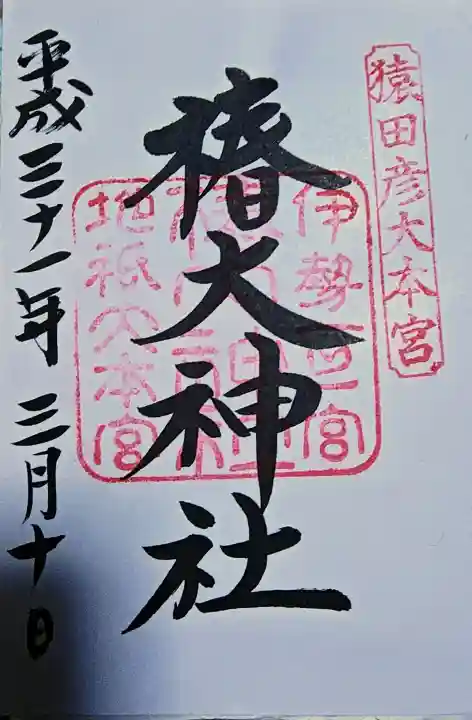 猿田彦大本宮
伊勢一之宮
椿大神社
地祇大本宮
平成三十一年三月十日